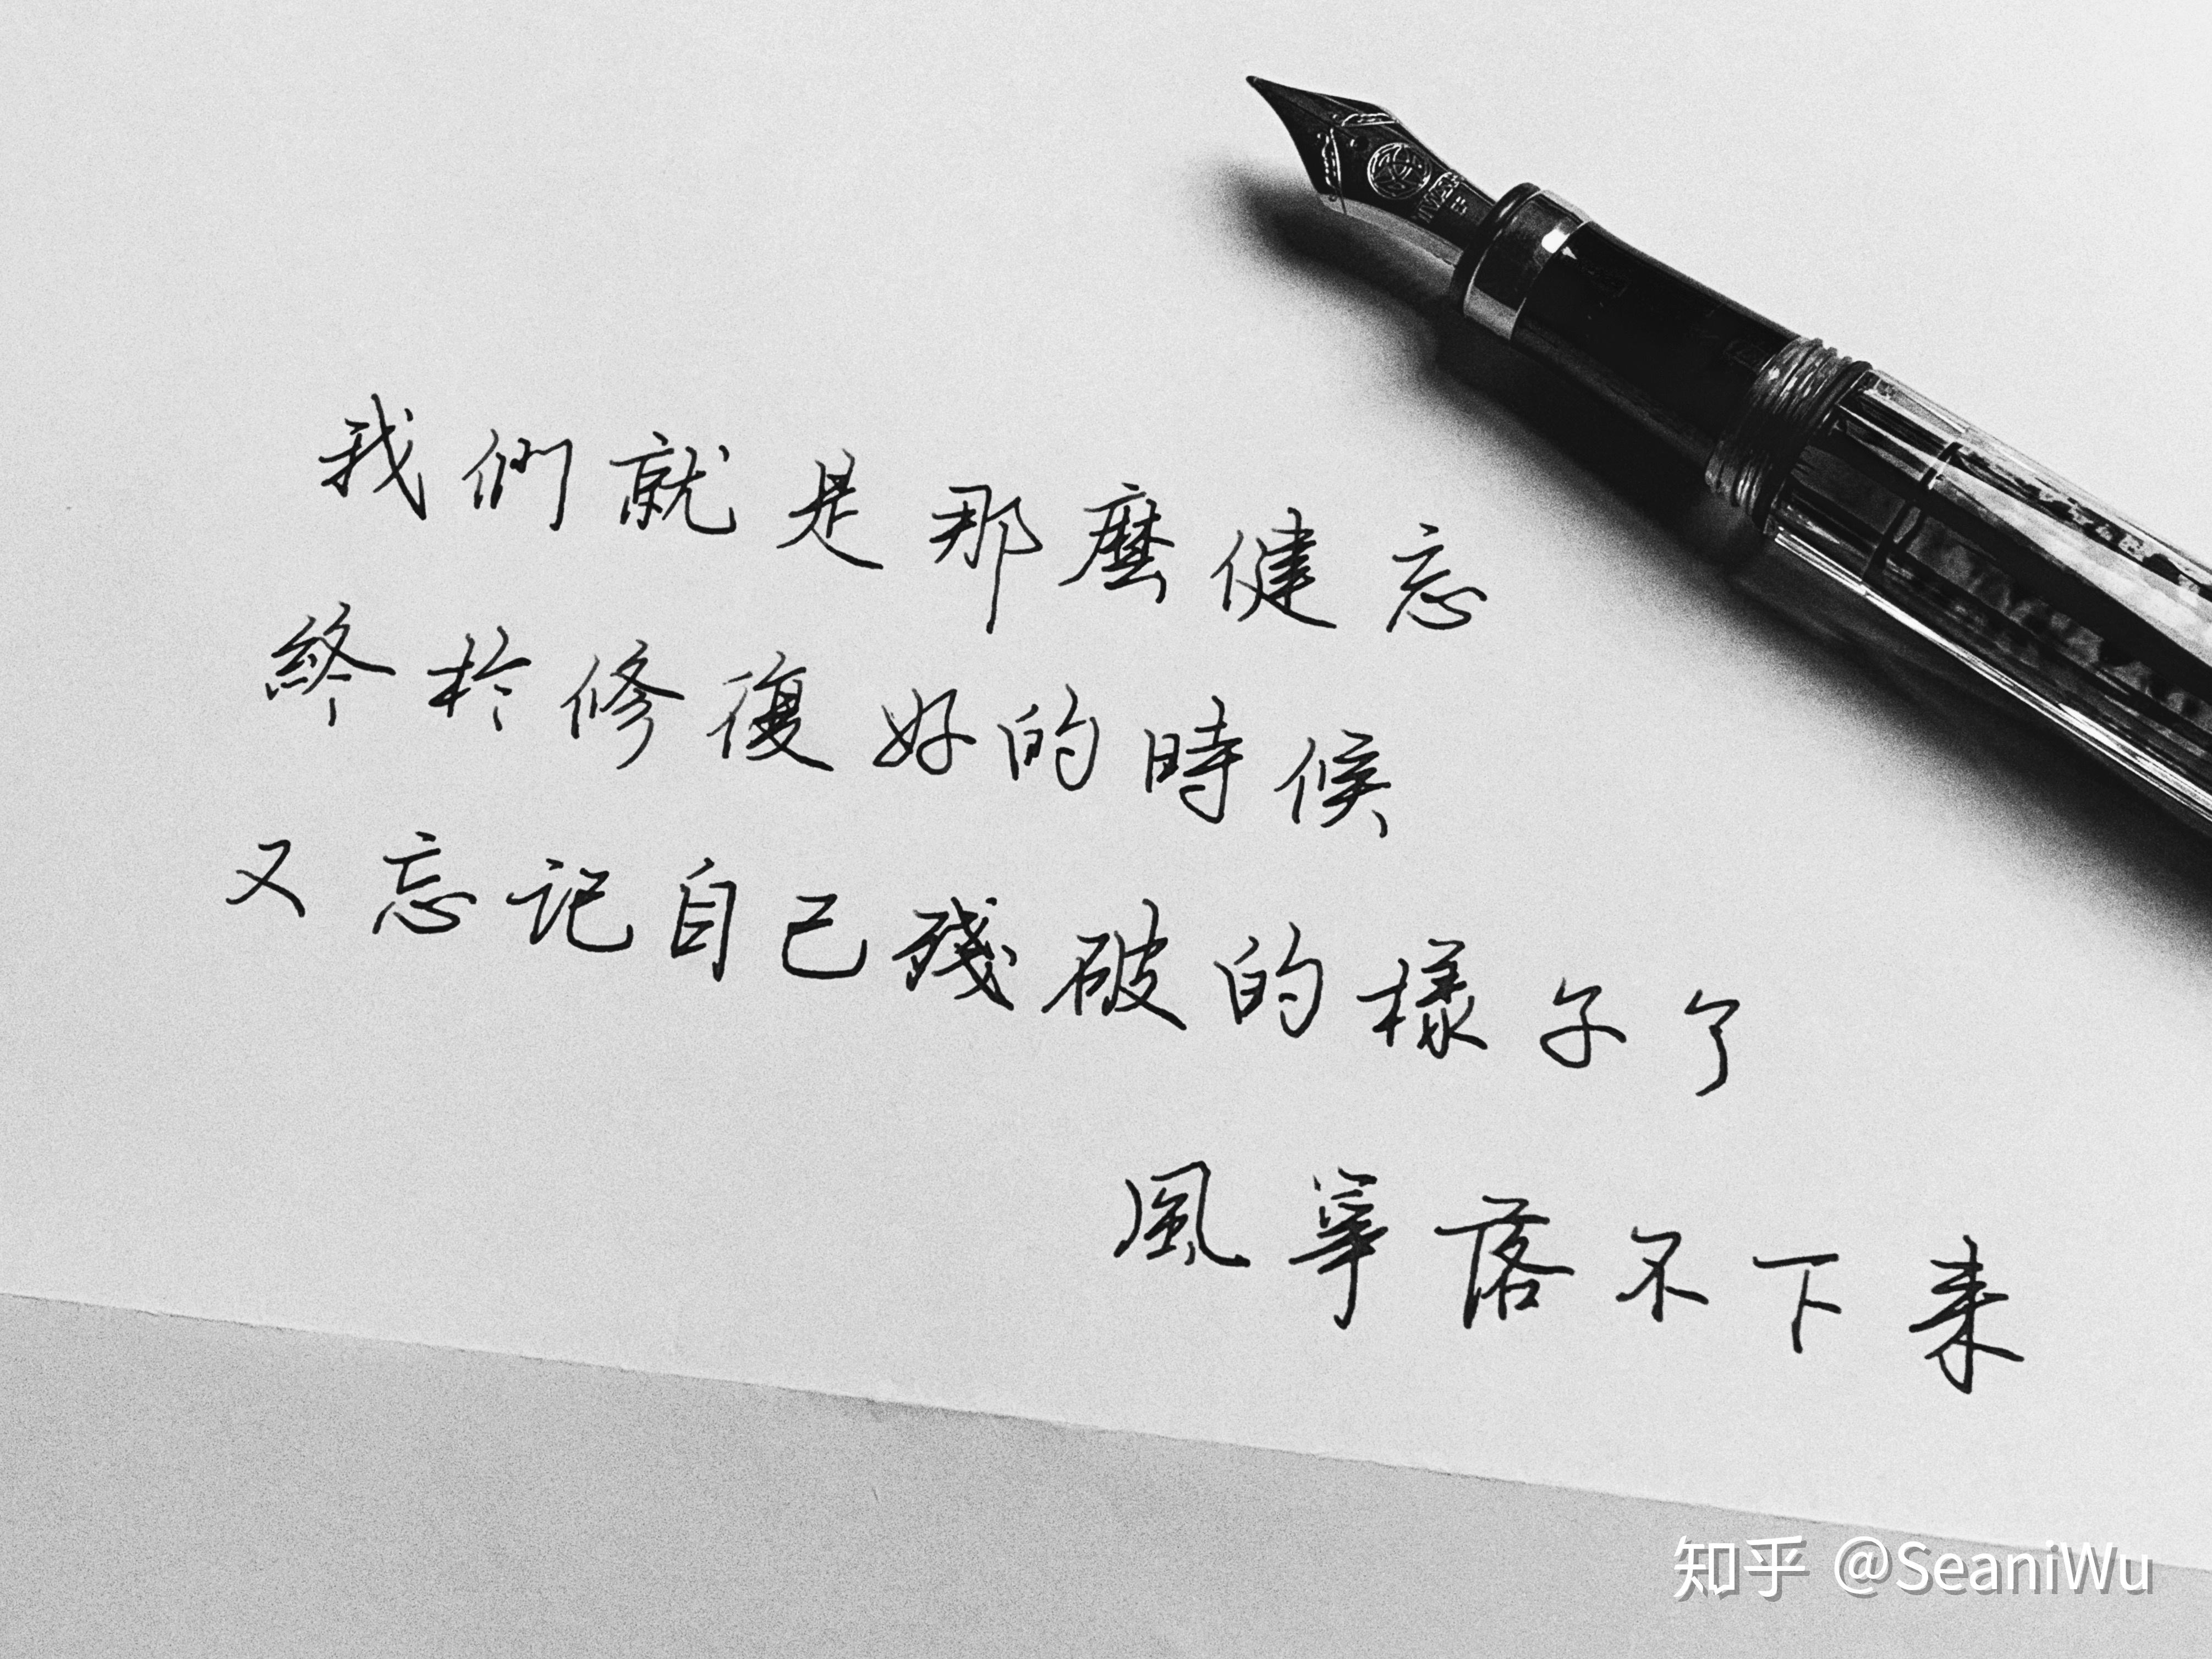 我們就是那麼健忘
終於修復好的時候
又忘记自己殘破的樣子了
風箏落不下来
知乎 @SeaniWu